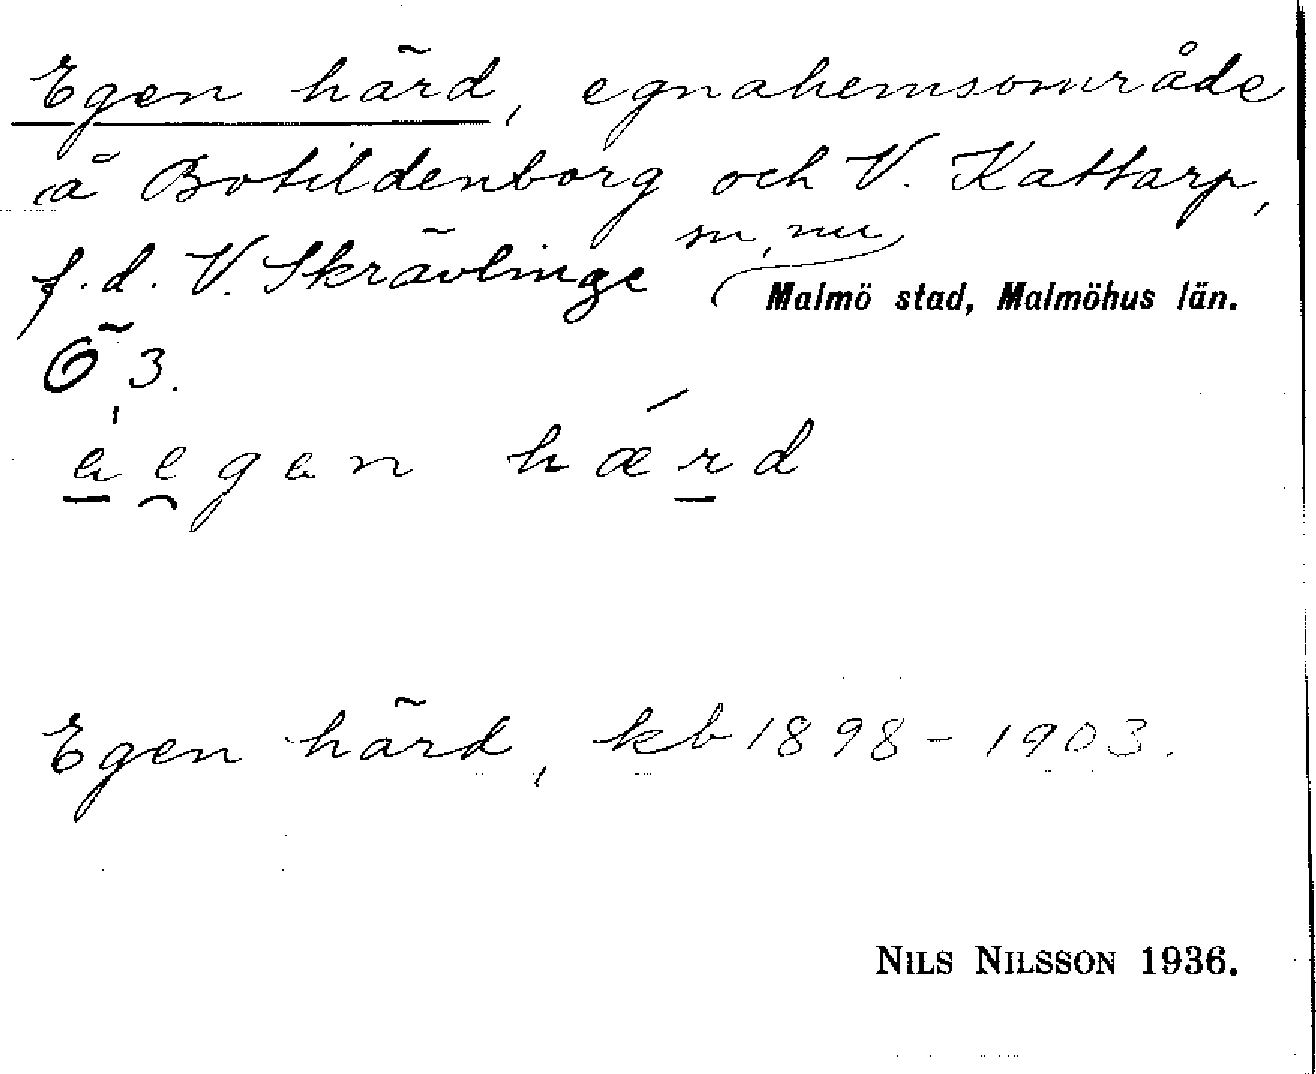 Egen härd, egnahemsområde
å Botildenborg och V. Kattarp,
f.d. V. Skrävlinge sn, nu
Malmö stad, Malmöhus län.
Ö 3.
egen hærd
Egen härd, kb 1898-1903.
NILS NILSSON 1936.